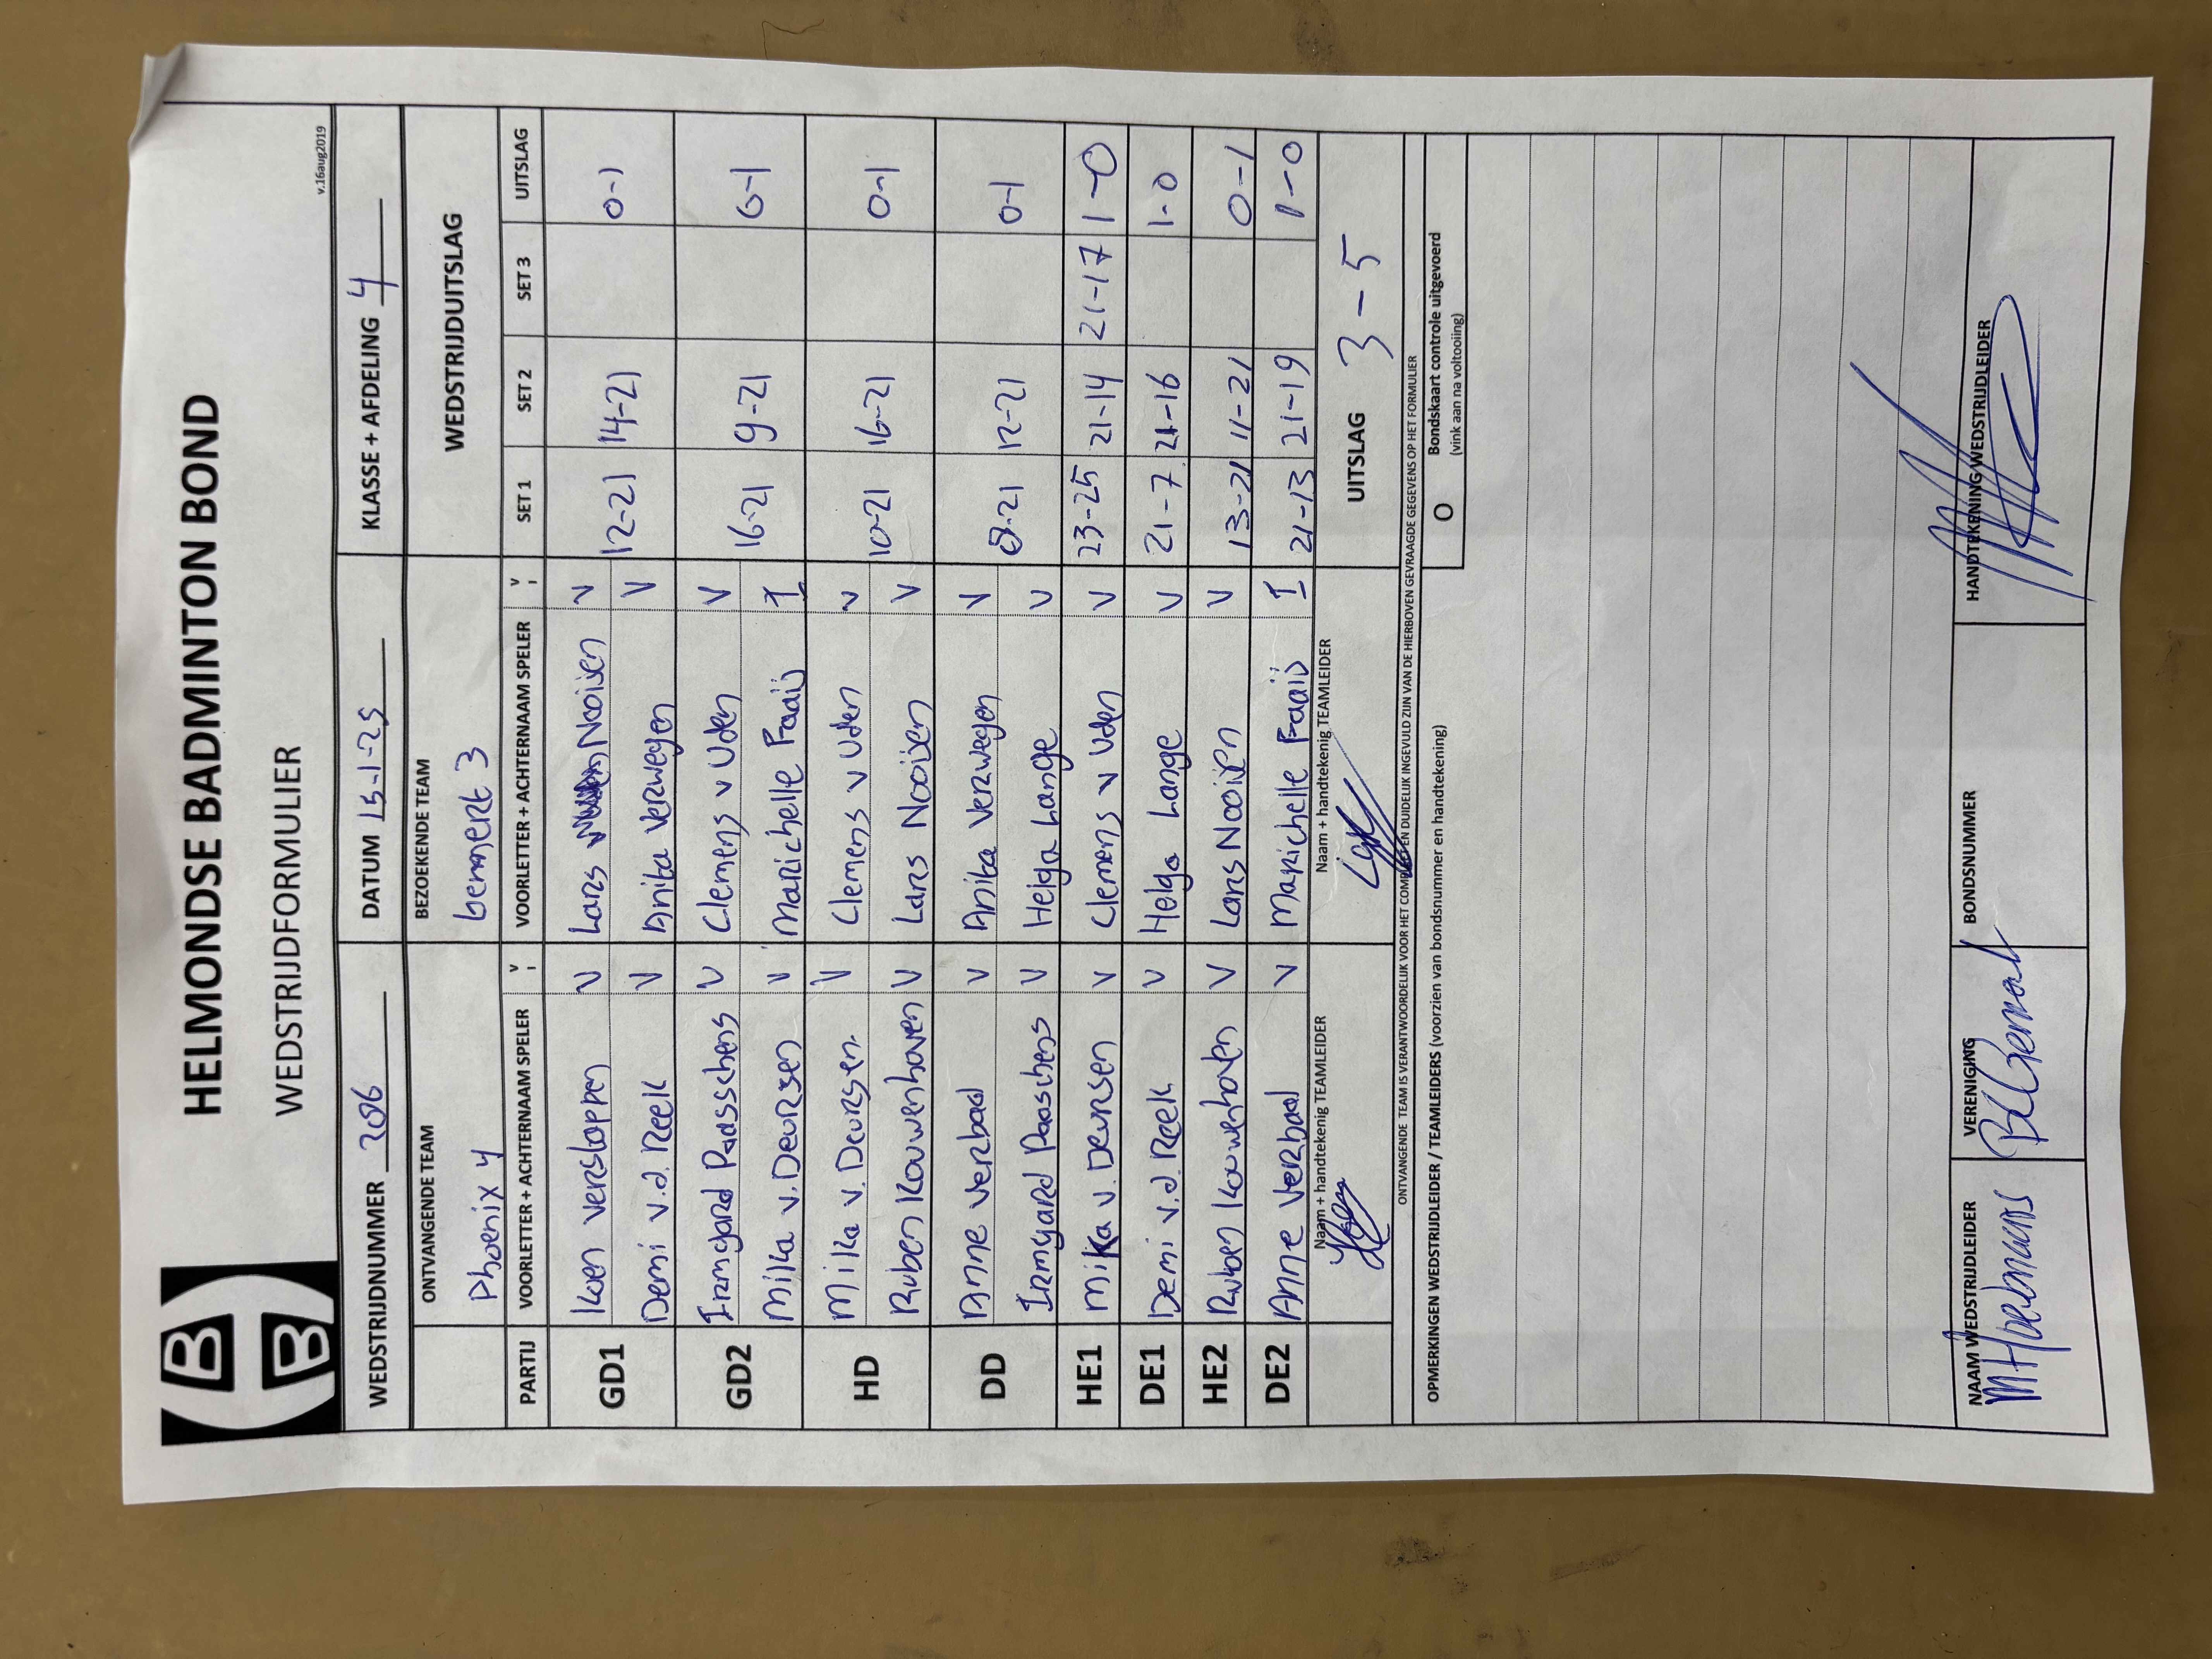 HELMONDSE BADMINTON BOND
WEDSTRIJDFORMULIER
v.16aug2019
WEDSTRIJDNUMMER 206 DATUM 15-1-25 KLASSE + AFDELING 4
ONTVANGENDE TEAM BEZOEKENDE TEAM WEDSTRIJDUITSLAG
Phoenix 4 bemmert 3
PARTIJ VOORLETTER + ACHTERNAAM SPELER V I VOORLETTER + ACHTERNAAM SPELER V I SET 1 SET 2 SET 3 UITSLAG
GD1 Koen Verstappen V Lars Nooijen V 12-21 14-21 0-1
Demi v.d. Reek V Anita Verwegen V
GD2 Irmgard Paasschens V Clemens v Uden V 16-21 9-21 0-1
Milka v. Deursen V Marichelle Faaij I
HD Milka v. Deursen. V Clemens v Uden V 10-21 16-21 0-1
Ruben Kouwenhoven V Lars Nooijen V
DD Anne Verbaal V Anita Verwegen V 8-21 12-21 0-1
Irmgard Paaschens V Helga Lange V
HE1 Milka v. Deursen V Clemens v Uden V 23-25 21-14 21-17 1-0
DE1 Demi v.d. Reek V Helga Lange V 21-7 21-16 1-0
HE2 Ruben Kouwenhoven V Lars Nooijen V 13-21 11-21 0-1
DE2 Anne Verbaal V Marichelle Faaij I 21-13 21-19 1-0
Naam + handtekenig TEAMLEIDER Naam + handtekenig TEAMLEIDER UITSLAG 3-5
ONTVANGENDE TEAM IS VERANTWOORDELIJK VOOR HET COMPLEET EN DUIDELIJK INGEVULD ZIJN VAN DE HIERBOVEN GEVRAAGDE GEGEVENS OP HET FORMULIER
OPMERKINGEN WEDSTRIJDLEIDER / TEAMLEIDERS (voorzien van bondsnummer en handtekening)
O Bondskaart controle uitgevoerd
(vink aan na voltooiing)
NAAM WEDSTRIJDLEIDER VERENIGING BONDSNUMMER HANDTEKENING WEDSTRIJDLEIDER